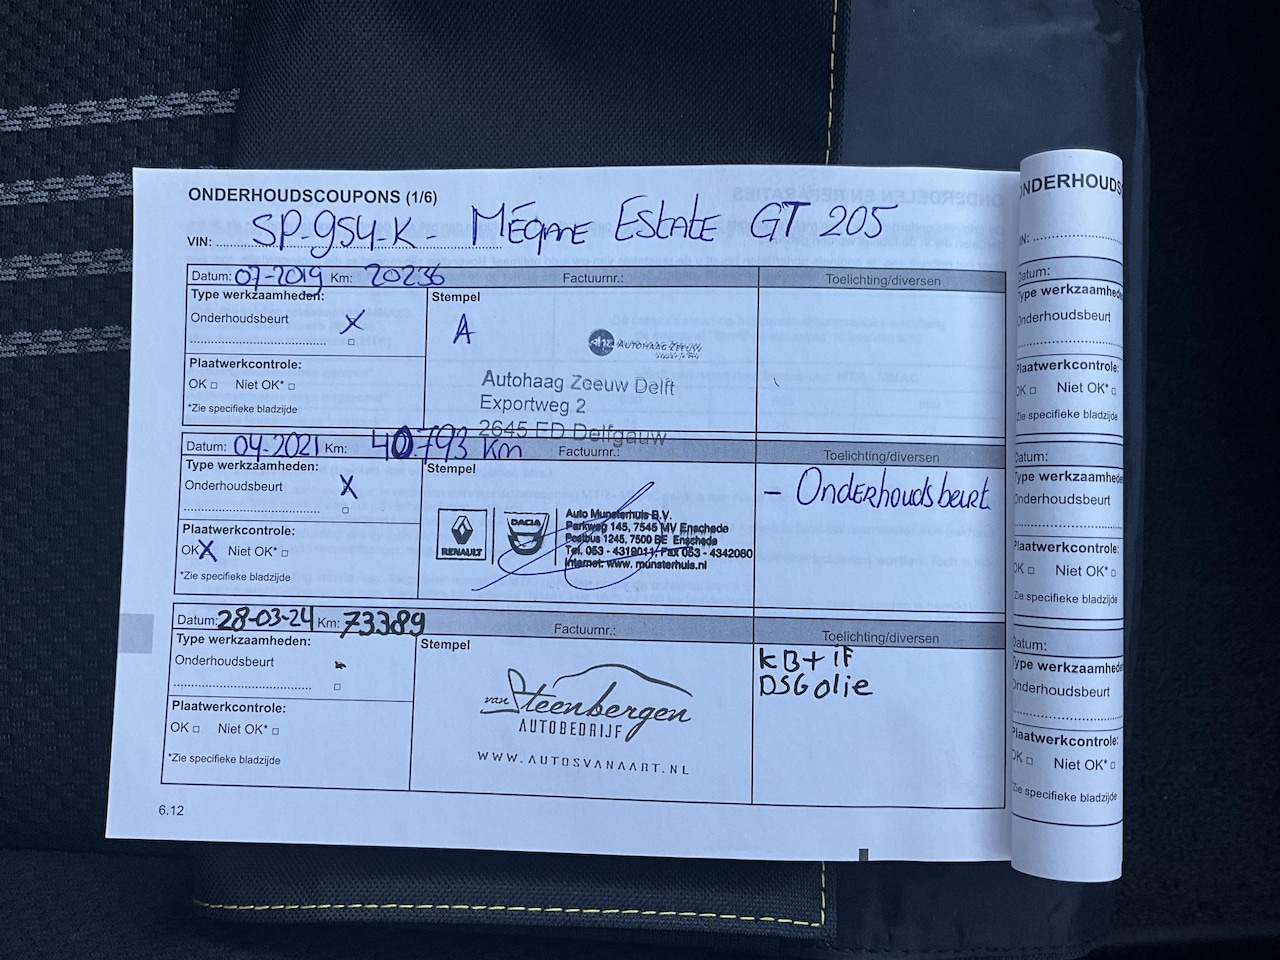 ONDERHOUDSCOUPONS (1/6)
VIN: SP-954-K - MÉGANE ESTATE GT 205
Datum: 07-2019 Km: 20236 Factuurnr.: Toelichting/diversen
Type werkzaamheden: Stempel
Onderhoudsbeurt X A
AHZ AUTOHAAG ZEEUW
Plaatwerkcontrole:
OK □ Niet OK* □ Autohaag Zeeuw Delft
Exportweg 2
*Zie specifieke bladzijde
2645 ED Delfgauw
Datum: 04-2021 Km: 40.793 Km Factuurnr.: Toelichting/diversen
Type werkzaamheden: Stempel
Onderhoudsbeurt X - ONDERHOUDSBEURT
Plaatwerkcontrole:
OK X Niet OK* □
*Zie specifieke bladzijde
RENAULT
DACIA
Auto Munsterhuis B.V.
Parkweg 145, 7545 MV Enschede
Postbus 1245, 7500 BE Enschede
Tel. 053 - 4319011/ Fax 053 - 4342080
Internet: www. munsterhuis.nl
Datum: 28-03-24 Km: 73389 Factuurnr.: Toelichting/diversen
Type werkzaamheden: Stempel
Onderhoudsbeurt
Plaatwerkcontrole:
OK □ Niet OK* □
*Zie specifieke bladzijde
van Steenbergen
AUTOBEDRIJF
WWW.AUTOSVANAART.NL
KB+iF
DSG olie
6.12
ONDERHOUDS
IN:
Datum:
Type werkzaamhede
Onderhoudsbeurt
Plaatwerkcontrole:
OK □ Niet OK* □
Zie specifieke bladzijde
Datum:
Type werkzaamhede
Onderhoudsbeurt
Plaatwerkcontrole:
OK □ Niet OK* □
Zie specifieke bladzijde
Datum:
Type werkzaamhede
Onderhoudsbeurt
Plaatwerkcontrole:
OK □ Niet OK* □
Zie specifieke bladzijde